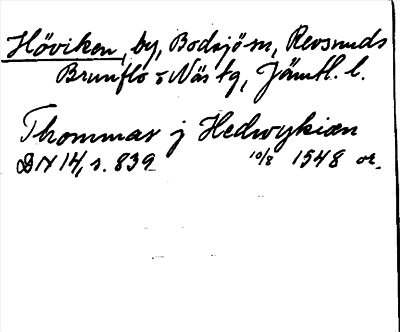 Höviken, by, Bodsjö sn, Revsunds
Brunflo o Näs tg, Jämtl. l.
Thommas j Hedwykiæn
DN 14, s. 839 10/8 1548 or.